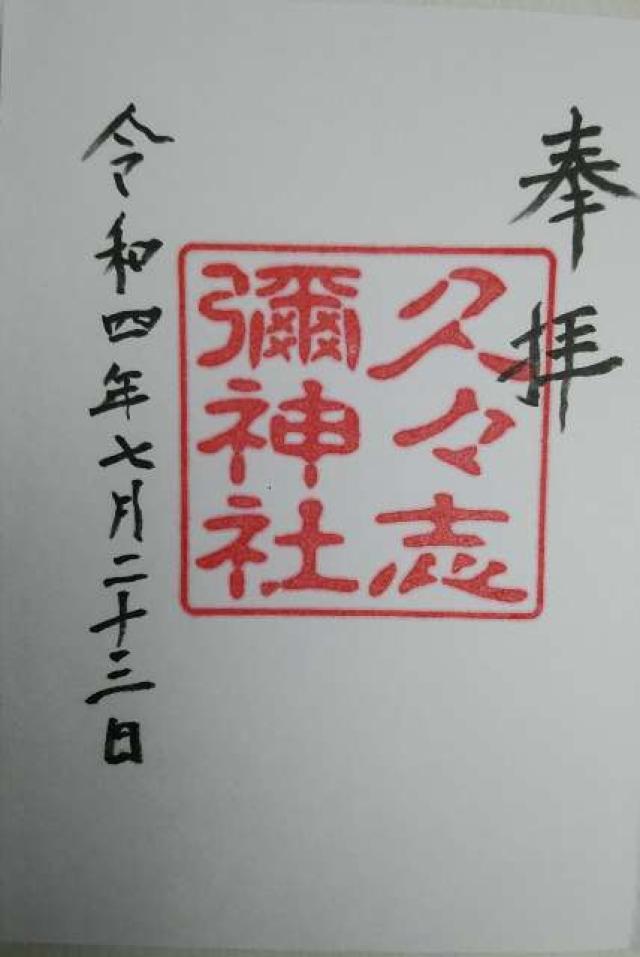 奉拝
久々志
彌神社
令和四年七月二十三日